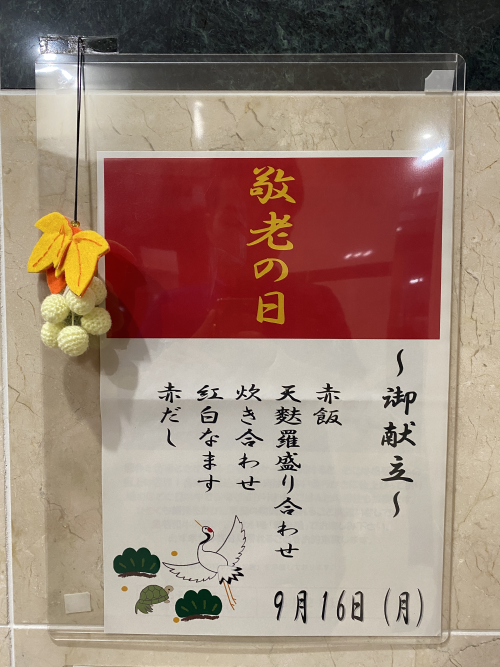 敬老の日
～御献立～
赤飯
天麩羅盛り合わせ
炊き合わせ
紅白なます
赤だし
9月16日（月）